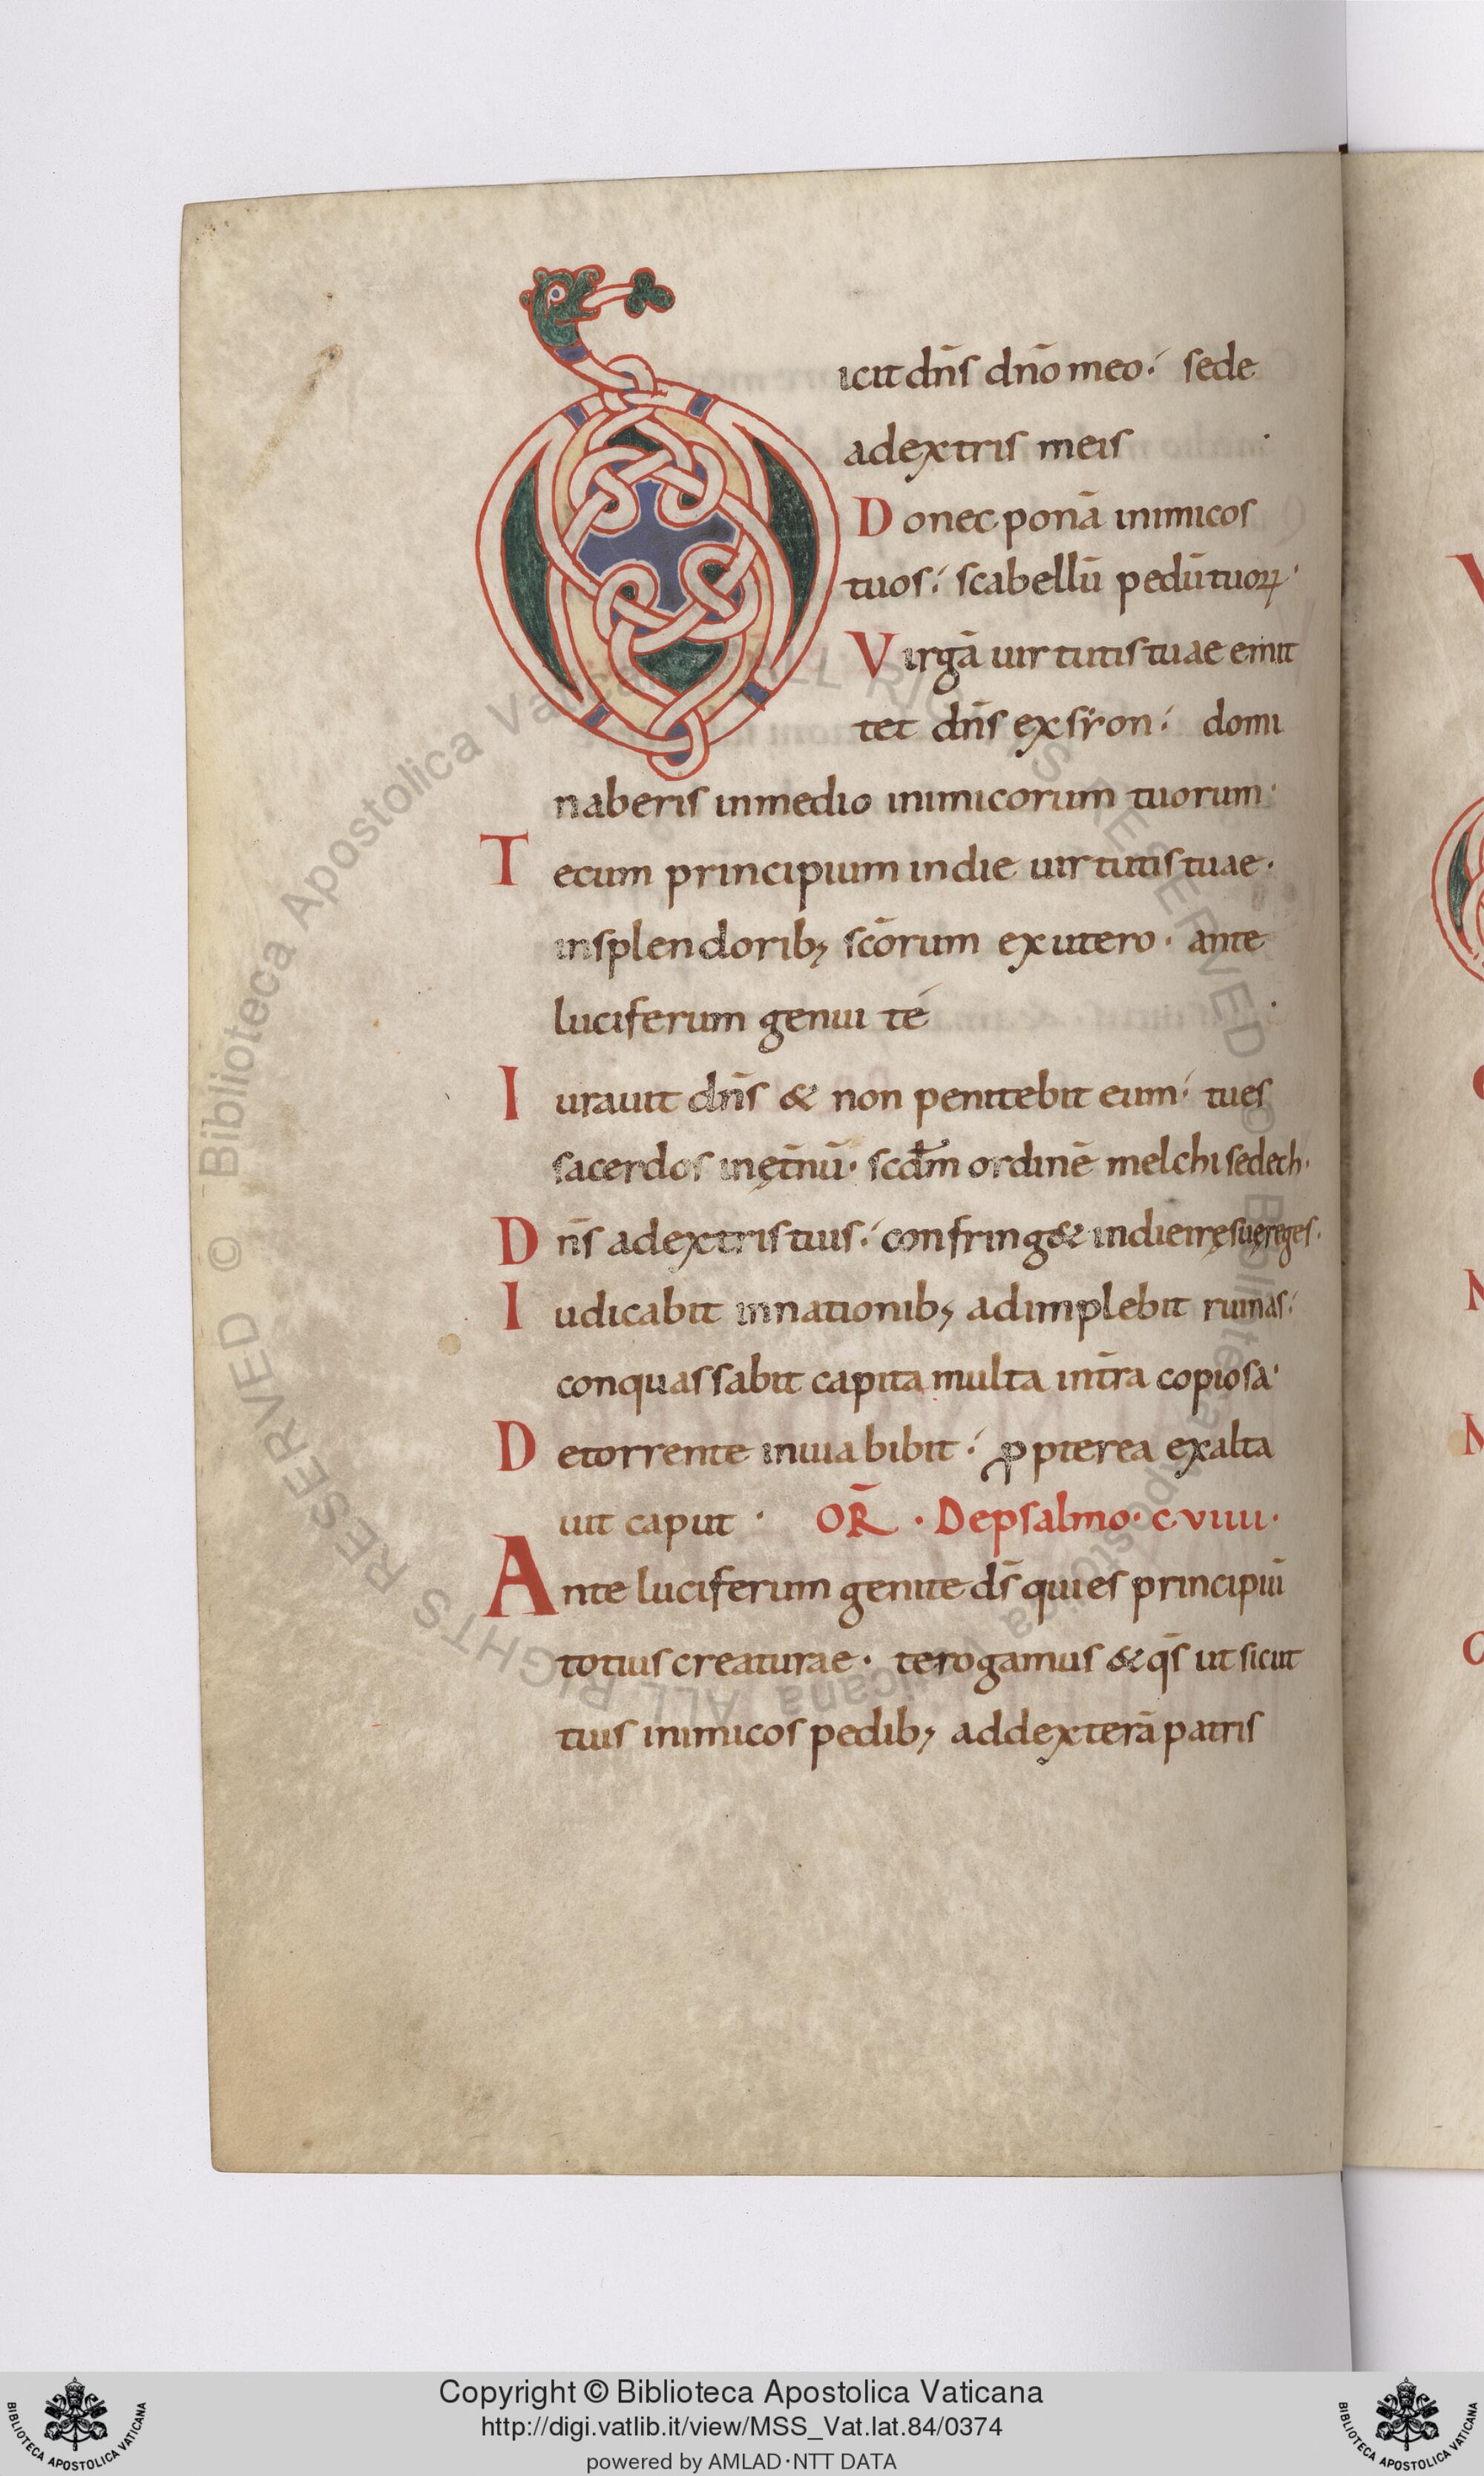 Dicit dn̄s dn̄o meo·́ sede
adextris meis ·
Donec ponā inimicos
tuos·́ scabellū pedū tuoꝝ·
Virgā uirtutis tuae emit
tet dn̄s exsyon·́ domi
naberis inmedio inimicorum tuorum·
Tecum principium indie uirtutis tuae·
insplendorib; sc̄orum exutero· ante
luciferum genui té ·
Iurauit dn̄s & non penitebit eum·́ tues
sacerdos inęt̄nū· scd̄m ordinē melchisedech·
Dn̄s adextris tuis·́ confring& indie irę suę reges·
Iudicabit innationib; adimplebit ruinas·́
conquassabit capita multa int̄ra copiosa·
Detorrente inuia bibit·́ ꝓpterea exalta
uit caput · OR̄ · Depsalmo· c·viiii·
Ante luciferum genite ds̄ qui es principiū
totius creaturae· te rogamus & qs̄ ut sicut
tuis inimicos pedib; addexterā patris
Copyright © Biblioteca Apostolica Vaticana
http://digi.vatlib.it/view/MSS_Vat.lat.84/0374
powered by AMLAD·NTT DATA
BIBLIOTECA APOSTOLICA VATICANA
BIBLIOTECA APOSTOLICA VATICANA
© Biblioteca Apostolica Vaticana ALL RIGHTS RESERVED © Biblioteca Apostolica Vaticana ALL RIGHTS RESERVED